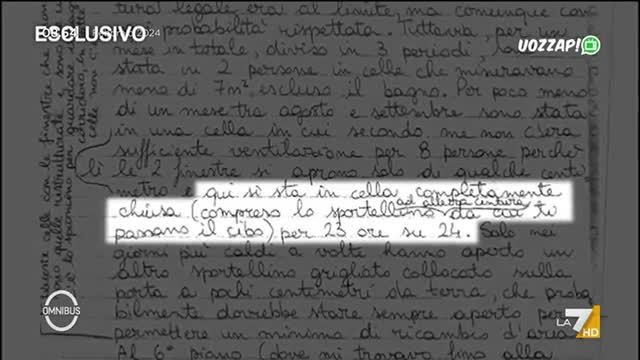 ESCLUSIVO
2024
UOZZAP!
tura legale era al limite, ma comunque con
probabilità rispettata. Tuttavia, per un
mese in totale, diviso in 3 periodi, sono
stata in 2 persone in celle che misuravano
meno di 7m² escluso il bagno. Per poco meno
di un mese tra agosto e settembre sono stata
in una cella in cui secondo me non c'era
sufficiente ventilazione per 8 persone perché
lì le 2 finestre si aprono solo di qualche centi
metro e qui si sta in cella completamente
chiusa (compreso lo sportellino ad altezza cintura da cui ti
passano il cibo) per 23 ore su 24. Solo nei
giorni più caldi a volte hanno aperto un
altro sportellino grigliato collocato sulla
porta a pochi centimetri da terra, che proba
bilmente dovrebbe stare sempre aperto per
permettere un minimo di ricambio d'aria.
Al 6° piano (dove mi trovavo fino alla
OMNIBUS
LA 7 HD